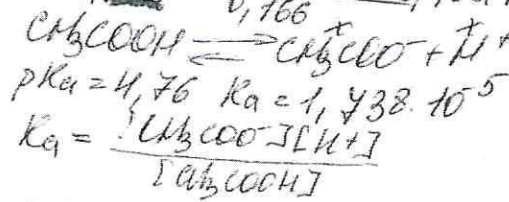 0,166
CH3COOH ⇌ CH3COO⁻ + H⁺
pKa = 4,76 Ka = 1,738·10⁻⁵
Ka = [CH3COO⁻][H+]
[CH3COOH]